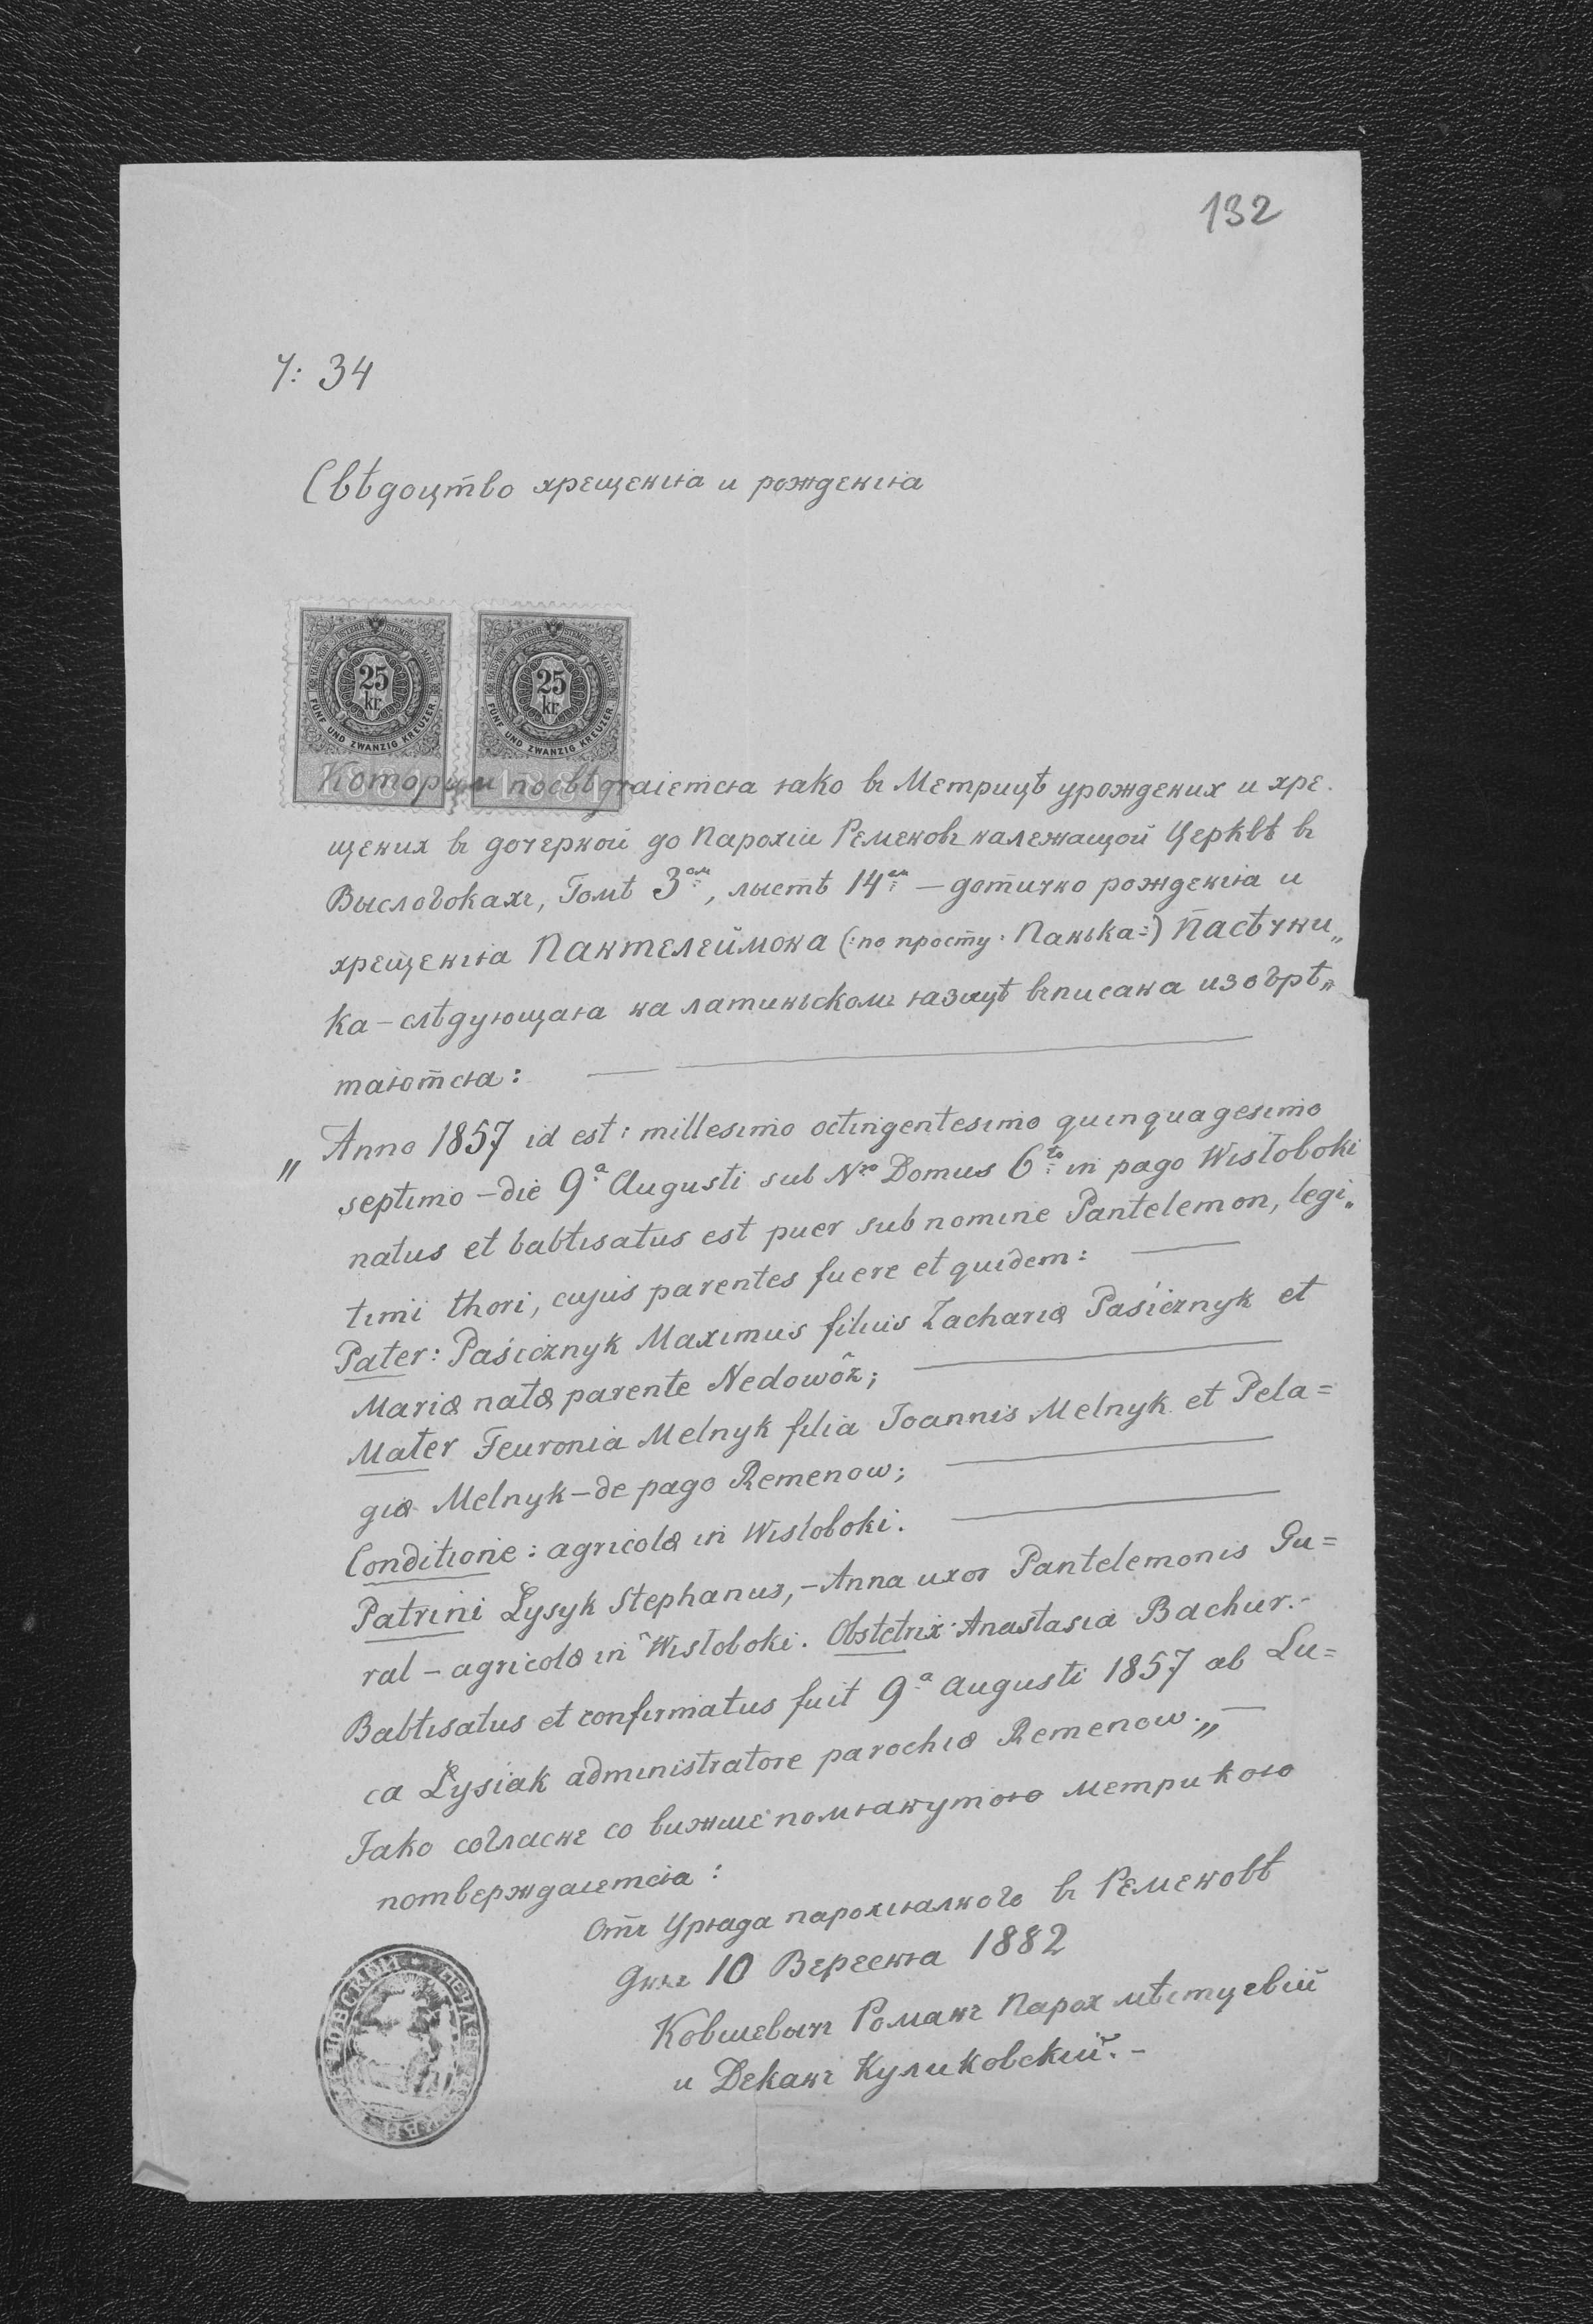 132
Ч: 34
Свѣдоцтво хрещенія и рожденія
25
kr
FÜNF UND ZWANZIG KREUZER
25
kr
FÜNF UND ZWANZIG KREUZER
1881
Которым посвѣдчаієтся яко въ Метрицѣ урождених и хре-
щених въ дочерной до Парохіи Ременовъ належащой Церквѣ въ
Выслобокахъ, Томѣ 3ом, лыстѣ 14ом — дотично рожденія и
хрещенія Пантелеймона (: по просту: Панька :) Пасѣчни„
ка — слѣдующая на латиньском языцѣ вписана изобрѣ„
таются:
„ Anno 1857 id est: millesimo octingentesimo quinquagesimo
septimo – die 9a Augusti sub Nro Domus 6to in pago Wisłoboki
natus et babtisatus est puer sub nomine Pantelemon, legi„
timi thori, cujus parentes fuere et quidem:
Pater: Pasicznyk Maximus filius Zachariæ Pasicznyk et
Mariæ natæ parente Nedowôz;
Mater Feuronia Melnyk filia Joannis Melnyk et Pela=
giæ Melnyk – de pago Remenow;
Conditione: agricolæ in Wisłoboki.
Patrini Łysyk Stephanus, – Anna uxor Pantelemonis Gu=
ral – agricolæ in Wisłoboki. Obstetrix Anastasia Bachur.-
Babtisatus et confirmatus fuit 9a Augusti 1857 ab Lu=
ca Łysiak administratore parochiæ Remenow.„ —
Яко согласне со вижше помянутою метрикою
потверждаієтся:
Отъ Уряда парохіялного въ Ременовѣ
Днѧ 10 Вересня 1882
Ковшевыч Романъ Парох мѣстцевій
и Деканъ Куликовскій.-